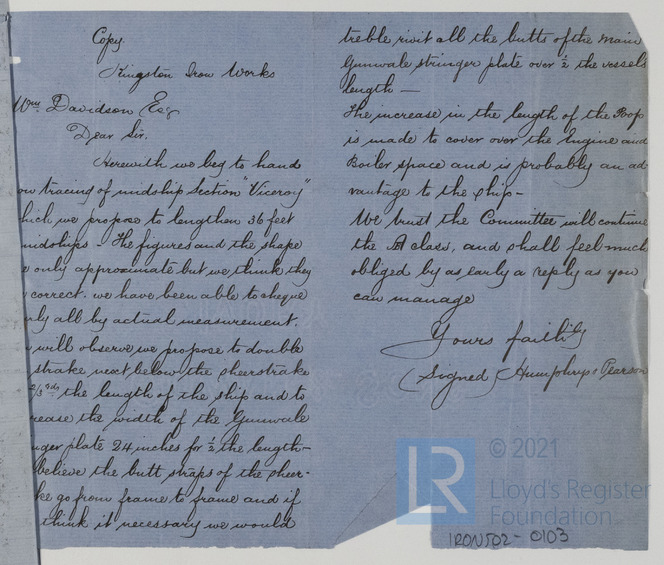 Copy.
Kingston Iron Works
Wm Davidson Esq
Dear Sir.
Herewith we beg to hand
tracing of midship Section "Viceroy"
hich we propose to lengthen 36 feet
midships - The figures and the shape
e only approximate but we think they
correct. we have been able to cheque
rly all by actual measurement.
will observe we propose to double
strake next below the sheerstrake
2/3rds the length of the ship and to
rease the width of the Gunwale
nger plate 24 inches for ½ the length -
believe the butt straps of the sheer-
ke go from frame to frame and if
think it necessary we would
treble rivit all the butts of the main
Gunwale stringer plate over ½ the vessels
length -
The increase in the length of the Poop
is made to cover over the Engine and
Boiler space and is probably an ad-
vantage to the ship -
We trust the Committee will continue
the A class, and shall feel much
obliged by as early a reply as you
can manage
Yours faithly
(Signed) Humphrys Pearson
LR
© 2021
Lloyd's Register
Foundation
IRON502-0103